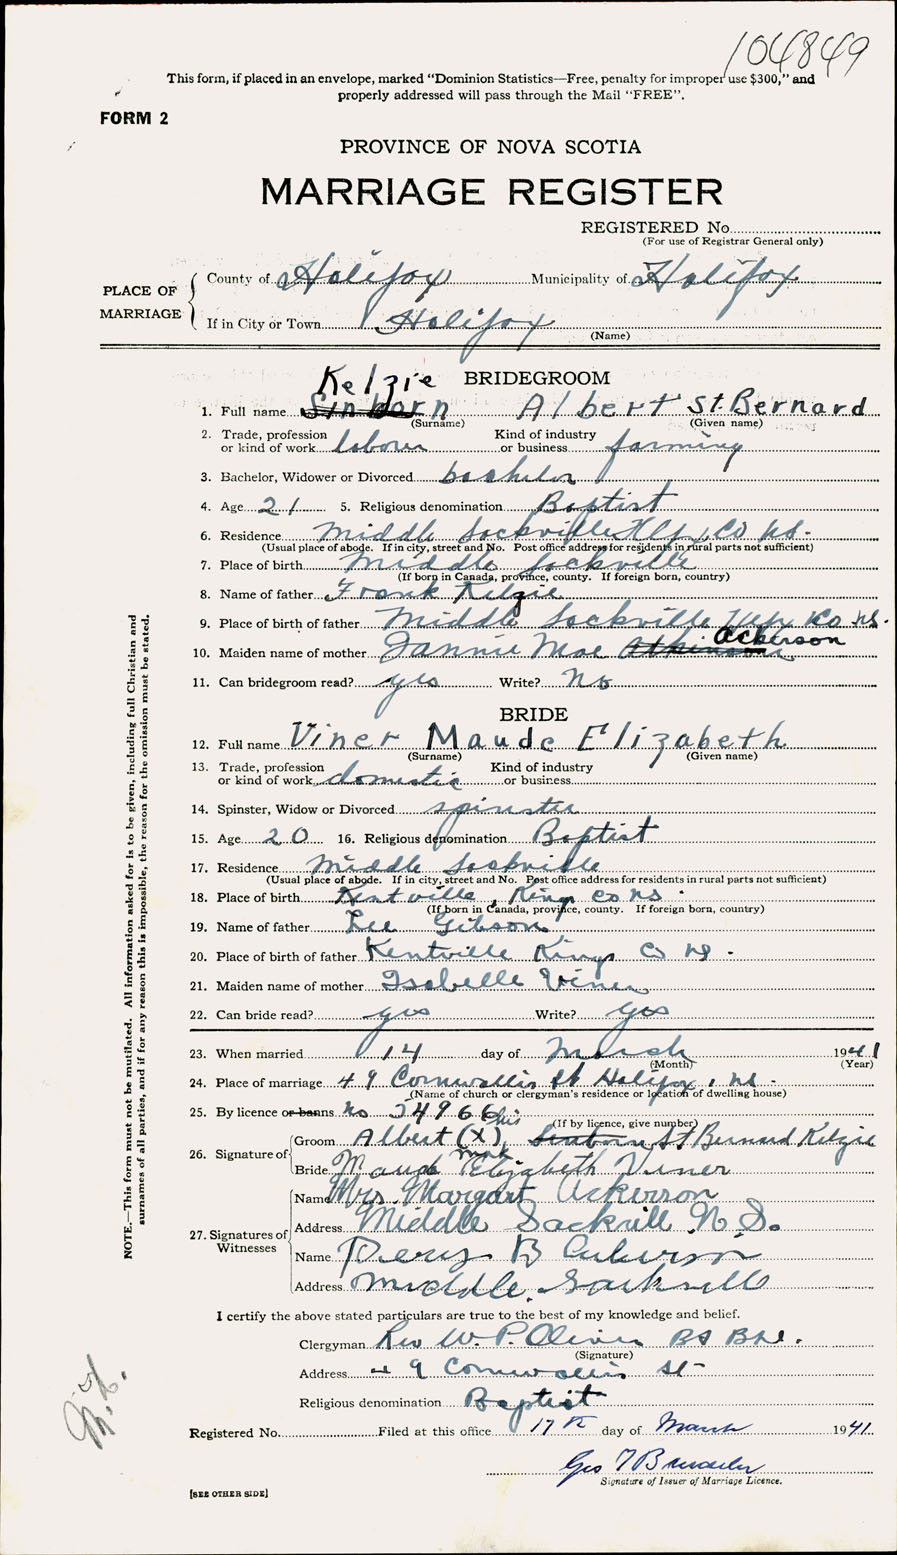 104849
This form, if placed in an envelope, marked "Dominion Statistics—Free, penalty for improper use $300," and
properly addressed will pass through the Mail "FREE".
FORM 2
PROVINCE OF NOVA SCOTIA
MARRIAGE REGISTER
REGISTERED No.
(For use of Registrar General only)
PLACE OF MARRIAGE
County of Halifax Municipality of Halifax
If in City or Town Halifax
(Name)
Kelzie BRIDEGROOM
1. Full name Albert St. Bernard
(Surname) (Given name)
2. Trade, profession or kind of work labourer Kind of industry or business farming
3. Bachelor, Widower or Divorced bachelor
4. Age 21 5. Religious denomination Baptist
6. Residence Middle Sackville Hfx, Co NS.
(Usual place of abode. If in city, street and No. Post office address for residents in rural parts not sufficient)
7. Place of birth Middle Sackville
(If born in Canada, province, county. If foreign born, country)
8. Name of father Frank Kelzie
9. Place of birth of father Middle Sackville Hfx Co NS.
10. Maiden name of mother Fannie Mae Atkinson Ackerson
11. Can bridegroom read? yes Write? No
BRIDE
12. Full name Viner Maude Elizabeth
(Surname) (Given name)
13. Trade, profession or kind of work domestic Kind of industry or business
14. Spinster, Widow or Divorced spinster
15. Age 20 16. Religious denomination Baptist
17. Residence Middle Sackville
(Usual place of abode. If in city, street and No. Post office address for residents in rural parts not sufficient)
18. Place of birth Kentville, Kings Co NS.
(If born in Canada, province, county. If foreign born, country)
19. Name of father Lee Gibson
20. Place of birth of father Kentville Kings Co NS.
21. Maiden name of mother Isabelle Viner
22. Can bride read? yes Write? yes
23. When married 14 day of March 1941
(Month) (Year)
24. Place of marriage 49 Cornwallis St Halifax, NS.
(Name of church or clergyman's residence or location of dwelling house)
25. By licence or banns No 54966
(If by licence, give number)
26. Signature of
Groom Albert (X) his mark St Bernard Kelzie
Bride Maude Elizabeth Viner
27. Signatures of Witnesses
Name Mrs. Margart Ackerson
Address Middle Sackvill N. S.
Name Percy B
Address Middle, Sackvill
I certify the above stated particulars are true to the best of my knowledge and belief.
Clergyman Rev W. P. Oliver BA BD.
(Signature)
Address 49 Cornwallis St
Religious denomination Baptist
Registered No. Filed at this office 17th day of March 1941.
Geo
Signature of Issuer of Marriage Licence.
[SEE OTHER SIDE]
NOTE.—This form must not be mutilated. All information asked for is to be given, including full Christian and
surnames of all parties, and if for any reason this is impossible, the reason for the omission must be stated.